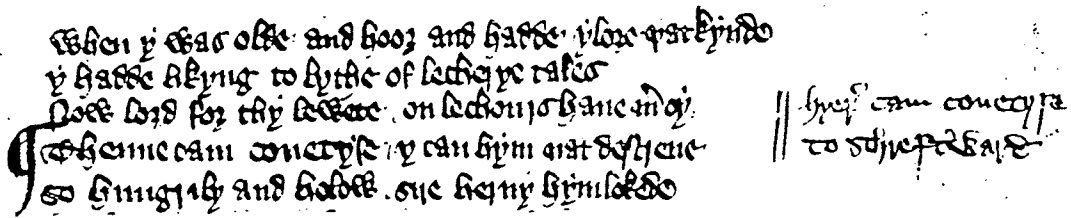 when y was olde · and hoor and hadde · ylore þat kynde
y hadde likyng to lythe of lecherye tales
Now lord for thy lewete · on lechouris haue mcy ·
¶ Thenne cam couetyse · y can hym nat descrieue
so hungrily and holow · sire heruy hym lokede
hyer cam couetyse
to schreftward